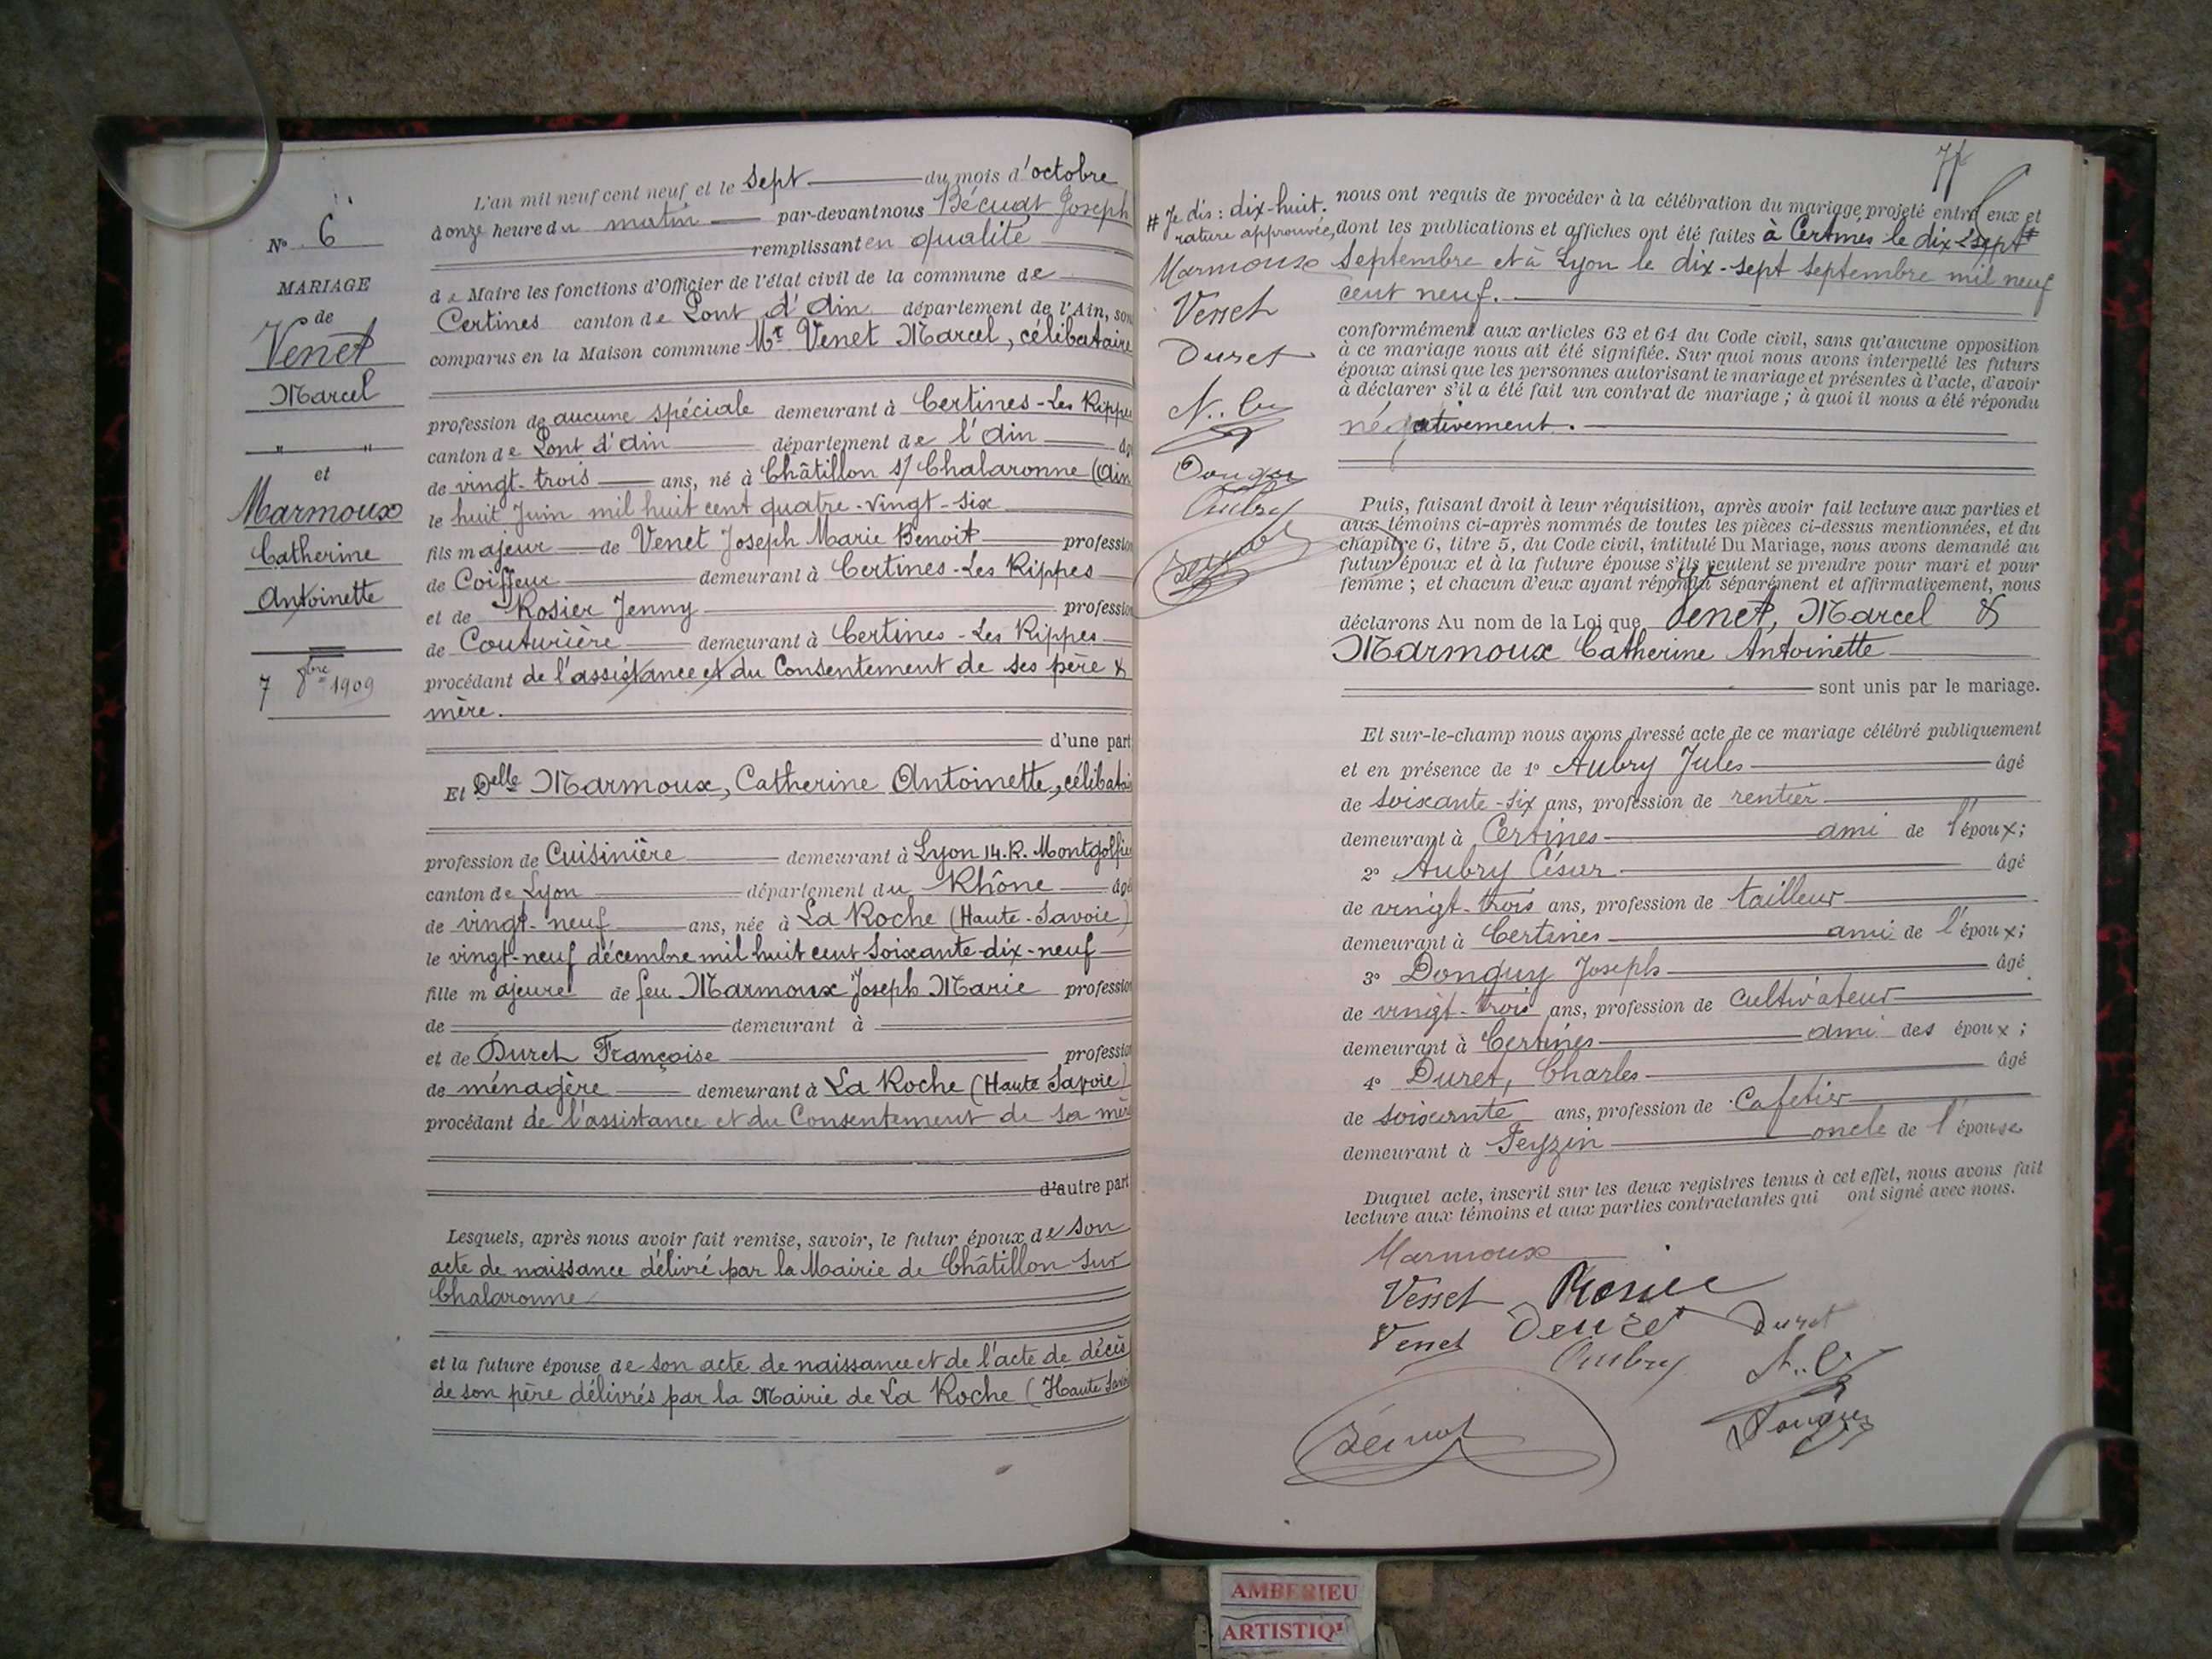 N° 6
MARIAGE
de
Venet
Marcel
" "
et
Marmoux
Catherine
Antoinette
7 8bre 1909
L'an mil neuf cent neuf et le sept du mois d'octobre
à onze heure du matin par-devant nous Bécuat Joseph
remplissant en qualité
de Maire les fonctions d'Officier de l'état civil de la commune de
Certines canton de Pont d'Ain département de l'Ain, son
comparus en la Maison commune Mr Venet Marcel, célibataire
profession de aucune spéciale demeurant à Certines-Les Rippes
canton de Pont d'Ain département de l'Ain âgé
de vingt-trois ans, né à Châtillon s/ Chalaronne (Ain
le huit Juin mil huit cent quatre-vingt-six
fils majeur de Venet Joseph Marie Benoit profession
de Coiffeur demeurant à Certines-Les Rippes
et de Rosier Jenny profession
de Couturière demeurant à Certines-Les Rippes
procédant de l'assistance et du Consentement de ses père &
mère.
d'une part
Et Delle Marmoux, Catherine Antoinette, célibatai
profession de Cuisinière demeurant à Lyon 14. R. Montgolfier
canton de Lyon département du Rhône âgé
de vingt-neuf ans, née à La Roche (Haute-Savoie)
le vingt-neuf décembre mil huit cent soixante-dix-neuf
fille majeure de feu Marmoux Joseph Marie profession
de demeurant à
et de Duret Françoise profession
de ménagère demeurant à La Roche (Haute Savoie)
procédant de l'assistance et du Consentement de sa mère
d'autre part
Lesquels, après nous avoir fait remise, savoir, le futur époux de son
acte de naissance délivré par la Mairie de Châtillon sur
Chalaronne
et la future épouse de son acte de naissance et de l'acte de décès
de son père délivrés par la Mairie de La Roche (Haute Savoi
# Je dis : dix-huit.
rature approuvée,
Marmoux
Venet
Duret
Aubry
nous ont requis de procéder à la célébration du mariage projeté entre eux et
dont les publications et affiches ont été faites à Certines le dix-sept #
Septembre et à Lyon le dix-sept septembre mil neuf
cent neuf.
conformément aux articles 63 et 64 du Code civil, sans qu'aucune opposition
à ce mariage nous ait été signifiée. Sur quoi nous avons interpellé les futurs
époux ainsi que les personnes autorisant le mariage et présentes à l'acte, d'avoir
à déclarer s'il a été fait un contrat de mariage ; à quoi il nous a été répondu
négativement.
Puis, faisant droit à leur réquisition, après avoir fait lecture aux parties et
aux témoins ci-après nommés de toutes les pièces ci-dessus mentionnées, et du
chapitre 6, titre 5, du Code civil, intitulé Du Mariage, nous avons demandé au
futur époux et à la future épouse s'ils veulent se prendre pour mari et pour
femme ; et chacun d'eux ayant répondu séparément et affirmativement, nous
déclarons Au nom de la Loi que Venet, Marcel &
Marmoux Catherine Antoinette
sont unis par le mariage.
Et sur-le-champ nous avons dressé acte de ce mariage célébré publiquement
et en présence de 1° Aubry Jules âgé
de soixante-six ans, profession de rentier
demeurant à Certines ami de l'époux;
2° Aubry César âgé
de vingt-trois ans, profession de tailleur
demeurant à Certines ami de l'époux;
3° Donguy Joseph âgé
de vingt-trois ans, profession de cultivateur
demeurant à Certines ami des époux ;
4° Duret, Charles âgé
de soixante ans, profession de Cafetier
demeurant à Feyzin oncle de l'épouse
Duquel acte, inscrit sur les deux registres tenus à cet effet, nous avons fait
lecture aux témoins et aux parties contractantes qui ont signé avec nous.
Marmoux
Venet Rosier
Venet Duret Duret
Aubry
Bécuat
Donguy
AMBERIEU
ARTISTIQ